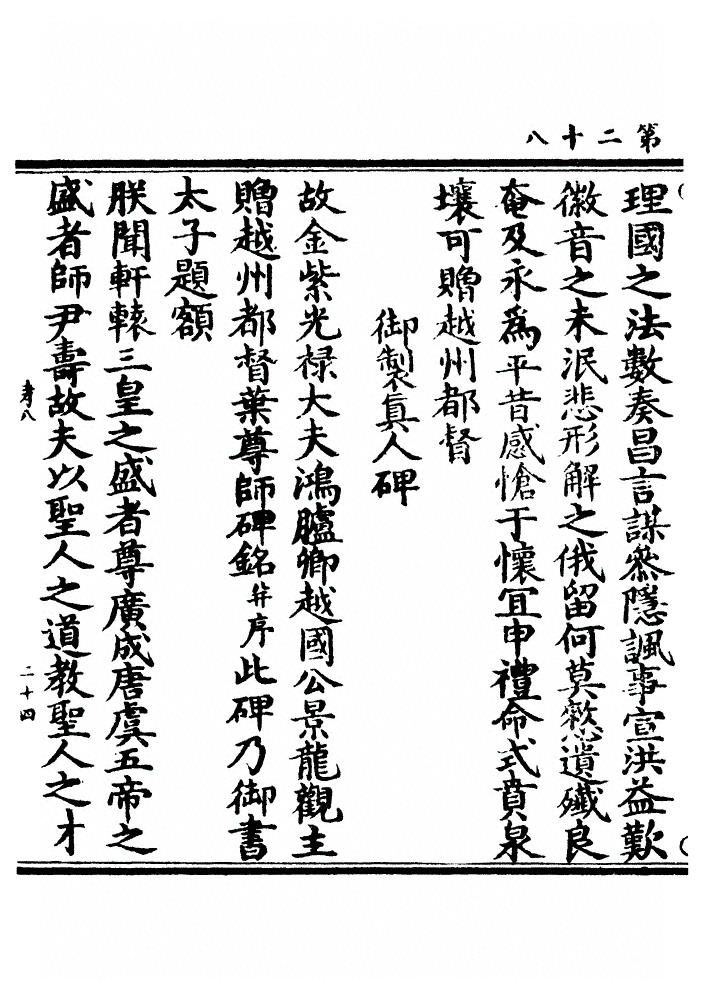 第二十八
理國之法數奏昌言謀叅隱諷事宣洪益歎
徽音之未泯悲形解之俄留何莫慭遺殲良
奄及永爲平昔感愴于懷冝申禮命式賁泉
壤可贈越州都督
御製真人碑
故金紫光禄大夫鴻臚卿越國公景龍觀主
贈越州都督葉尊師碑銘并序此碑乃御書
太子題額
朕聞軒轅三皇之盛者尊廣成唐虞五帝之
盛者師尹壽故夫以聖人之道教聖人之才
寿八
二十四